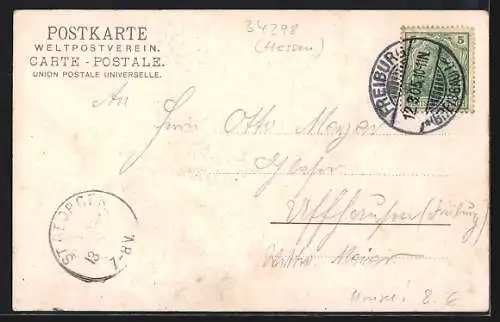 POSTKARTE
WELTPOSTVEREIN.
CARTE - POSTALE.
UNION POSTALE UNIVERSELLE.
34298
(Hessen)
5
FREIBURG
12.8.05.10-11N.
(BREISGAU)
An
Herrn Otto Meyer
Glaser
Uffhausen (Freiburg)
ST. GEORGEN
13
7-8V.
8. E